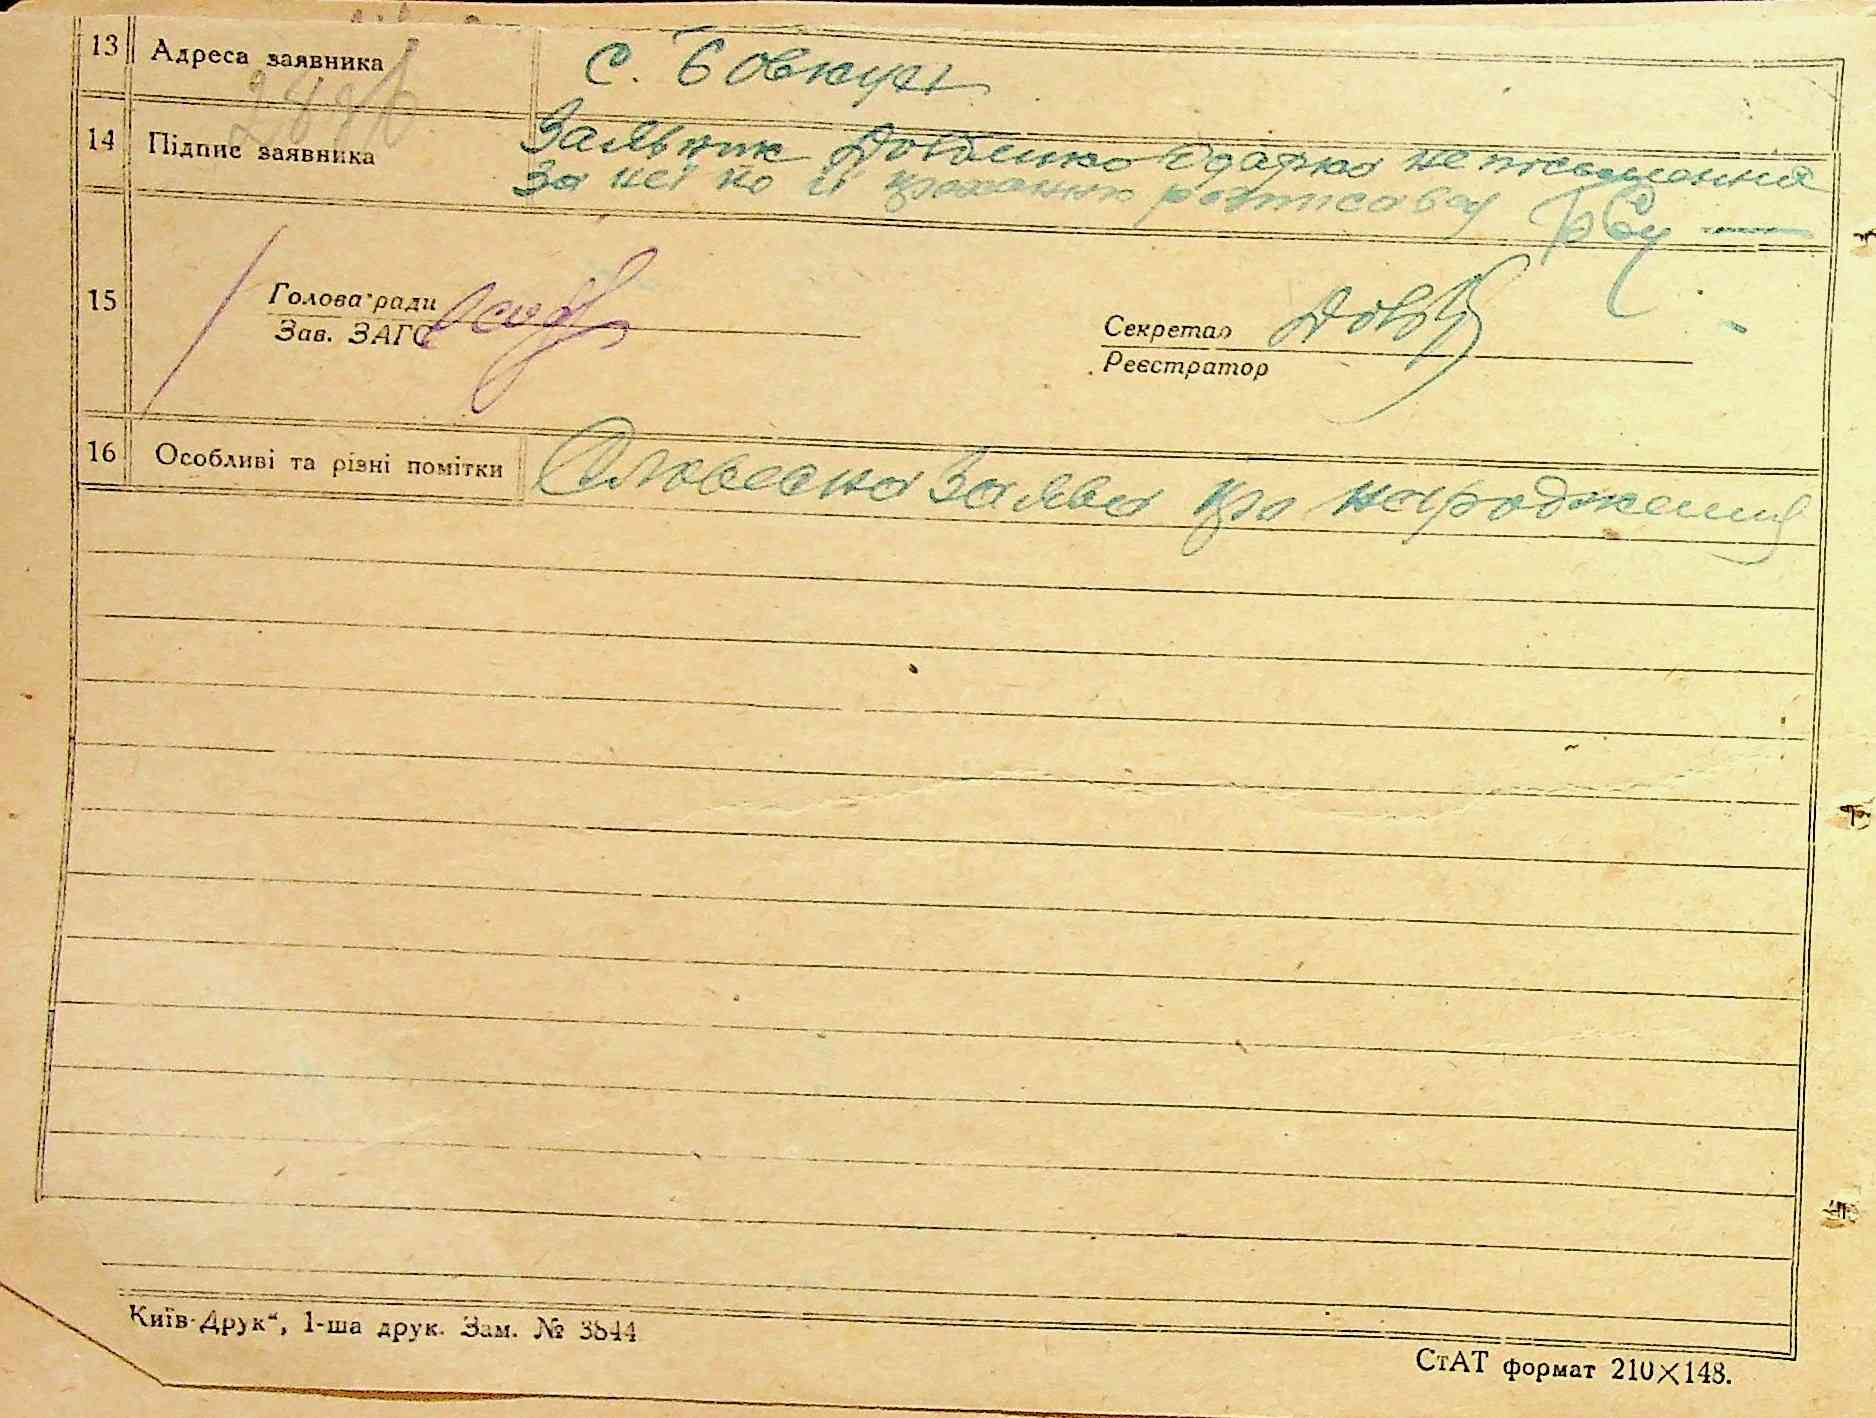 13 Адреса заявника с. Бовкун
14 Підпис заявника Заявник Довбенко Одарка не письменна
За неї по її проханню розписався
15 Голова ради Секретар
Зав. ЗАГС Реєстратор
16 Особливі та різні помітки Словесна Заява про народження
Київ-Друк“, 1-ша друк. Зам. № 3844
СтАТ формат 210×148.